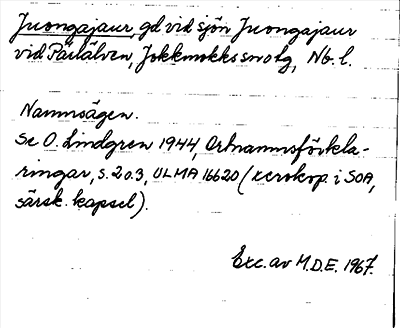 Juongajaur, gd vid sjön Juongajaur
vid Pärlälven, Jokkmokks snolg, Nb. l.
Namnsägen.
Se O. Lindgren 1944, Ortnamnsförkla-
ringar, s. 2 o. 3, ULMA 16620 (xerokop. i SOA,
särsk. kapsel).
Exc. av M.D.E. 1967.